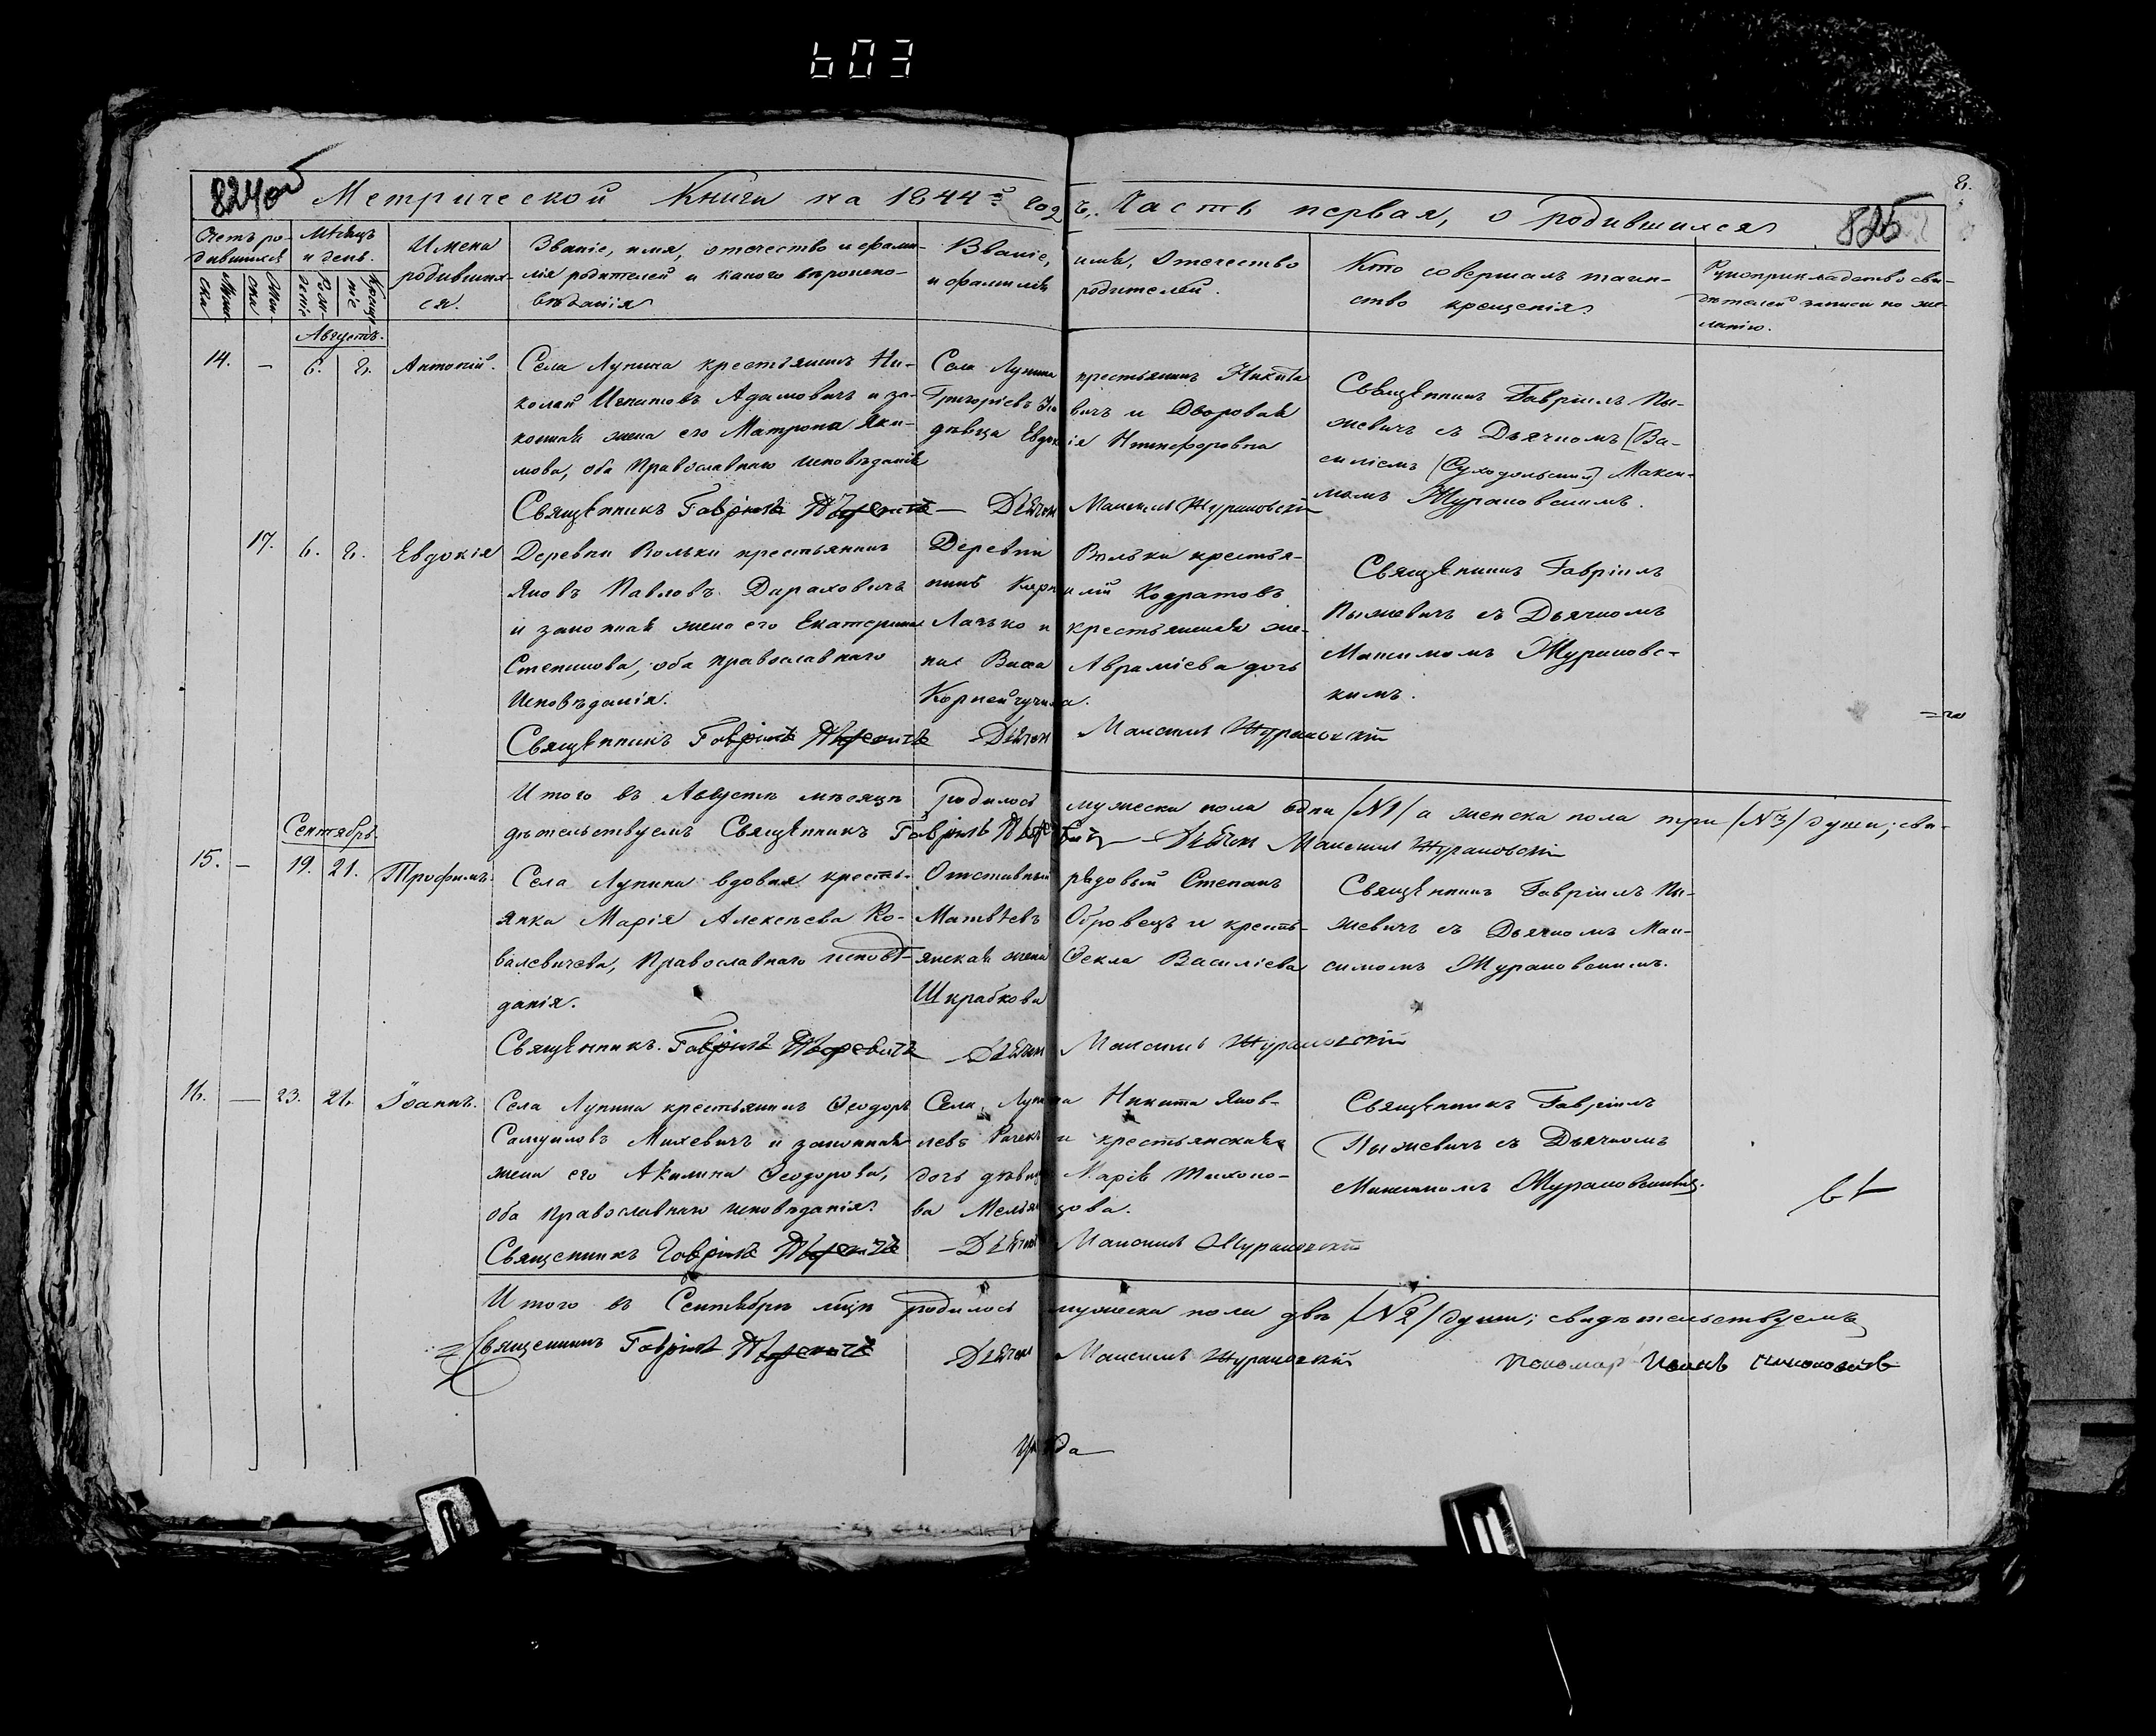 603
824об
Метрической Книги на 1844й годъ. Часть первая, о родившихся
825
8.
Счетъ ро-
дившихся
Мѣсяцъ
и день.
Имена
родивших-
ся.
Званіе, имя, отечество и фами-
лія родителей и какого вѣроиспо-
вѣданія
Званіе, имя, отечество
и фамилія родителей.
Кто совершалъ таин-
ство крещенія
Рукоприкладство сви-
дѣтелей записи по же-
ланію.
Муже-
ска
Жен-
ска
Рож-
деніе
Креще-
ніе
Августъ.
14. — 6. 8. Антоній.
Села Лунина крестьянинъ Ни-
колай Игнатовъ Адамовичъ и за-
конная жена его Матрона Яки-
мова, оба Православнаго исповѣданія
Села Лунина крестьянинъ Никита
Григоріевъ
вичъ и Дворовая
дѣвица Евдокія Никифоровна
Священникъ Гавріилъ Пы-
жевичъ съ Дьячкомъ [Ва-
силіемъ (Суходольскимъ] Макси-
момъ Журановскимъ.
Священникъ Гавріилъ Пыжевичъ — Дьячокъ Максимъ Журановскій
17. 6. 8. Евдокія
Деревни Вольки крестьянинъ
Яковъ Павловъ Дараховичъ
и законная жена его Екатерина
Степанова, оба православнаго
Исповѣданія.
Деревни Вольки крестья-
нинъ Карнилій Кодратовъ
Лачько и крестьянская же-
на Васса Авраміева дочь
Корнейчучика.
Священникъ Гавріилъ
Пыжевичъ съ Дьячкомъ
Максимомъ Журановс-
кимъ.
Священникъ Гавріилъ Пыжевичъ — Дьячокъ Максимъ Журановскій
Итого въ Августѣ мѣсяцѣ родилось мужеска пола одна /№1/ а женска пола три /№3/ души; сви-
дѣтельствуемъ Священникъ Гавріилъ Пыжевичъ — Дьячокъ Максимъ Журановскій
Сентябрь.
15. — 19. 21. Трофимъ.
Села Лунина вдовая кресть-
янка Марія Алексѣева Ко-
валевичева, Православнаго исповѣ-
данія.
Отставный рядовый Степанъ
Матвѣевъ Обровецъ и кресть-
янская жена Ѳекла Василіева
Шкрабкова
Священникъ Гавріилъ Пы-
жевичъ съ Дьячкомъ Мак-
симомъ Журановскимъ.
Священникъ Гавріилъ Пыжевичъ — Дьячокъ Максимъ Журановскій
16. — 23. 24. Іоаннъ.
Села Лунина крестьянинъ Ѳеодоръ
Самуиловъ Михевичъ и законная
жена его Акилина Ѳеодорова,
оба Православнаго исповѣданія.
Села Лунина Никита Яков-
левъ Рачекъ и крестьянская
дочь дѣвица Марія Тихоно-
ва Мельянцова.
Священникъ Гавріилъ
Пыжевичъ съ Дьячкомъ
Максимомъ Журановскимъ.
Священникъ Гавріилъ Пыжевичъ — Дьячокъ Максимъ Журановскій
Итого въ Сентябрѣ мѣцѣ родилось мужеска пола двѣ /№2/ души; свидѣтельствуемъ
Священникъ Гавріилъ Пыжевичъ Дьячокъ Максимъ Журановскій
Пономар